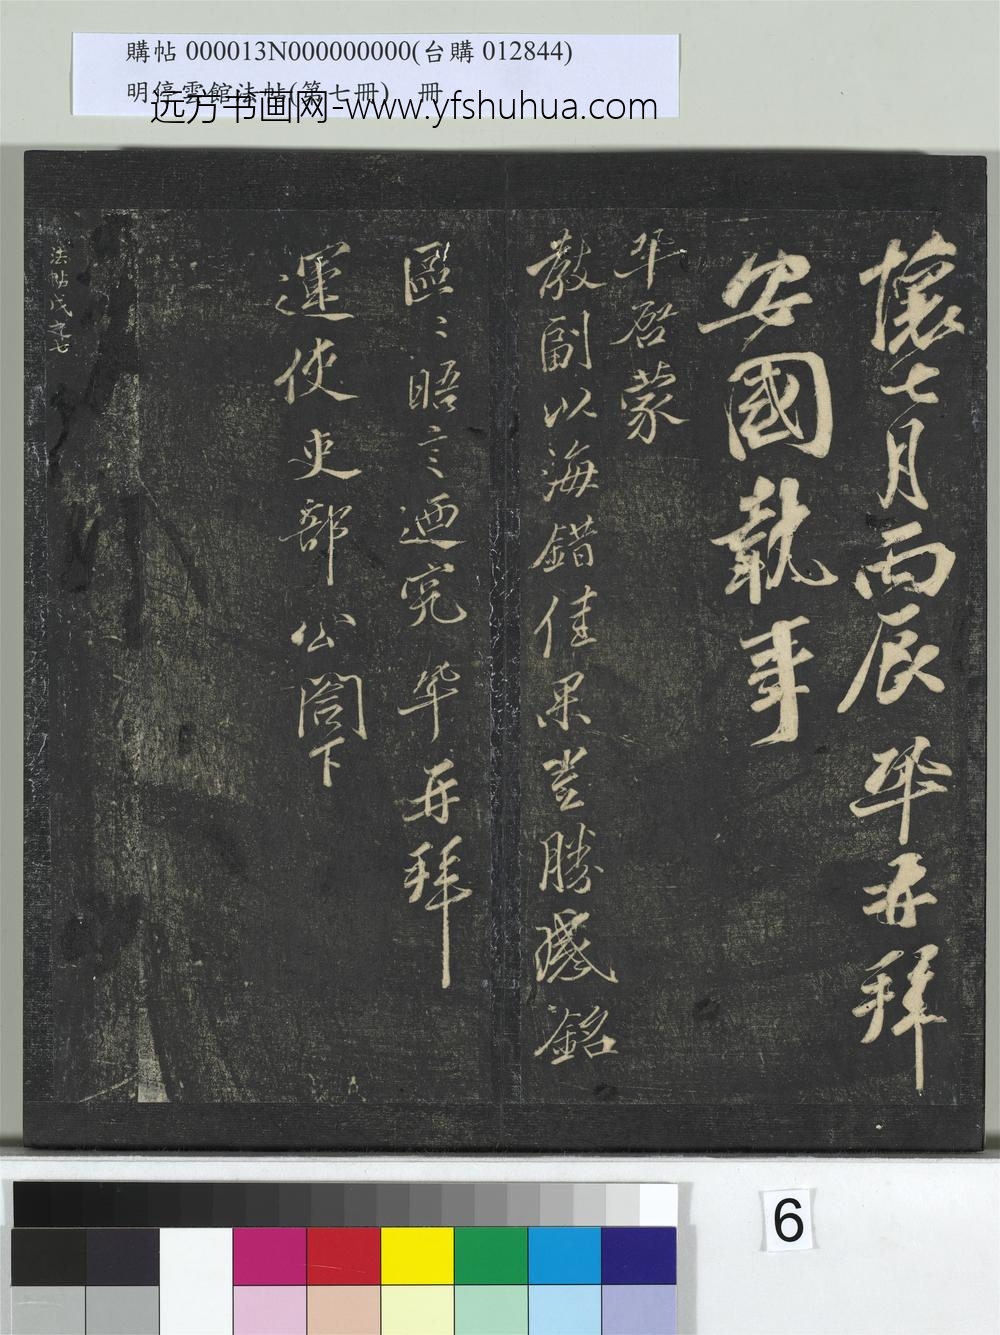 購帖 000013N000000000(台購 012844)
明停雲館法帖(第七冊) 冊
远方书画网-www.yfshuhua.com
懷七月丙辰䇶再拜
安國執事
啓蒙
教副以海錯佳果豈勝感銘
區〻晤言迺究 再拜
運使吏部公閤下
法帖戊 七
6